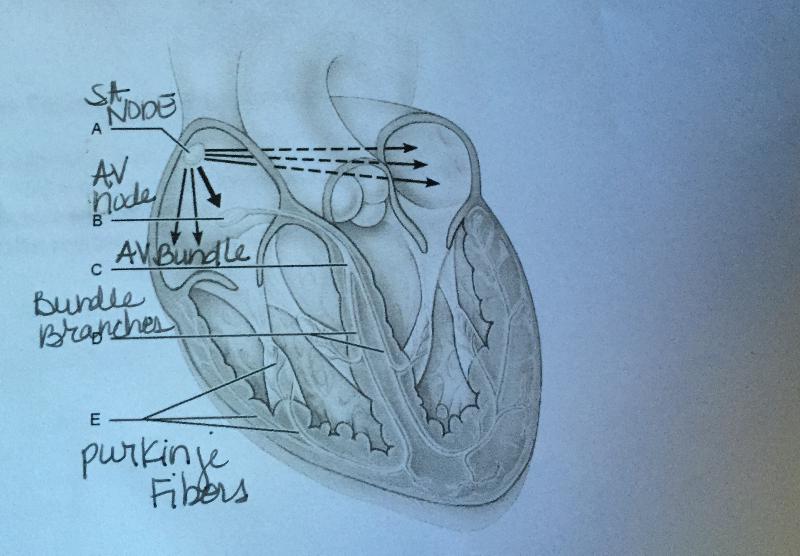 SA
NODE
A
AV
Node
B
AV Bundle
C
Bundle
Branches
D
E
Purkinje
Fibers